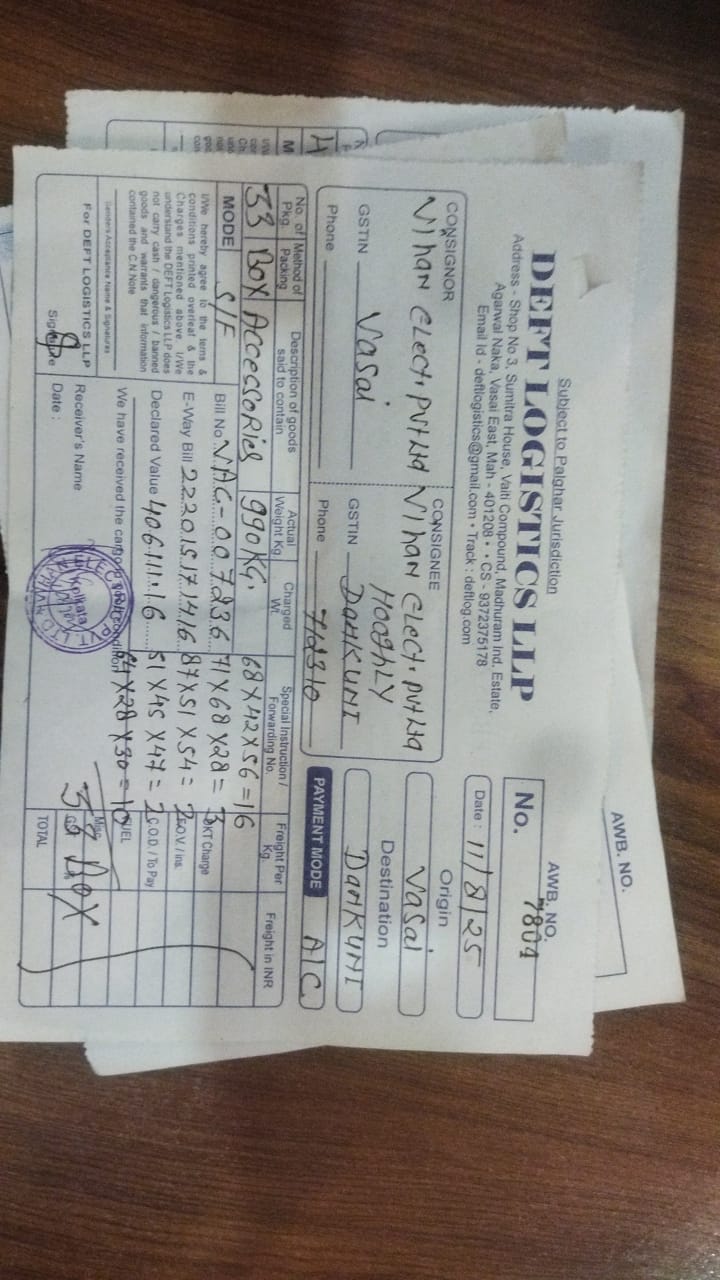 AWB. NO.
Subject to Palghar Jurisdiction
DEFT LOGISTICS LLP
Address - Shop No 3, Sumitra House, Valti Compound, Madhuram Ind. Estate,
Agarwal Naka, Vasai East, Mah - 401208 • • CS - 9372375178
Email Id - deftlogistics@gmail.com • Track : deftlog.com
AWB. NO.
No. 7804
Date : 11/8/25
CONSIGNOR
Vihan Elect. Pvt Ltd
GSTIN Vasai
Phone
CONSIGNEE
Vihan Elect. Pvt Ltd
Hooghly
GSTIN DANKUNI
Phone 712310
Origin
Vasai
Destination
DANKUNI
PAYMENT MODE A/C
No. of Pkg. Method of Packing Description of goods said to contain Actual Weight Kg. Charged Wt. Special Instruction / Forwarding No. Freight Per Kg. Freight in INR
33 Box Accessories 990 KG. 68 X 42 X 56 = 16
MODE S/F Bill No. VAC-007236 71 X 68 X 28 = 3 DKT Charge
E-Way Bill 222015171416 87 X 51 X 54 = 2 F.O.V / ins.
Declared Value 406111.16 51 X 45 X 47 = 2 C.O.D. / To Pay
I/We hereby agree to the terms &
conditions printed overleaf & the
Charges mentioned above. I/We
understand the DEFT Logistics LLP does
not carry cash / dangerous / banned
goods and warrants that information
contained the C.N.Note
We have received the cargo in good condition X 28 X 30 = 10 FUEL
Senders Acceptance Name & Signatures
For DEFT LOGISTICS LLP
Signature
Receiver's Name
Date :
Kolkata
PVT. LTD.
Misc.
33 Box
TOTAL